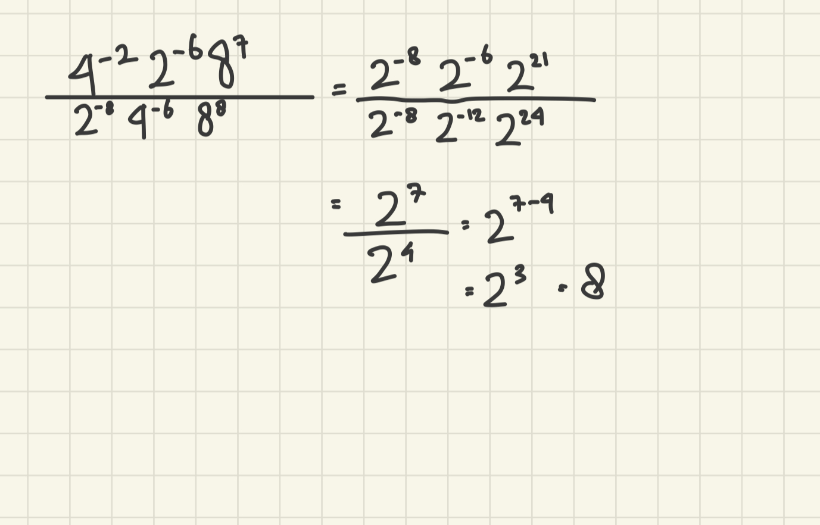 4^{-2} 2^{-6} 8^{7} / 2^{-8} 4^{-6} 8^{8} = 2^{-8} 2^{-6} 2^{21} / 2^{-8} 2^{-12} 2^{24}
= 2^{7} / 2^{4} = 2^{7-4}
= 2^{3} = 8